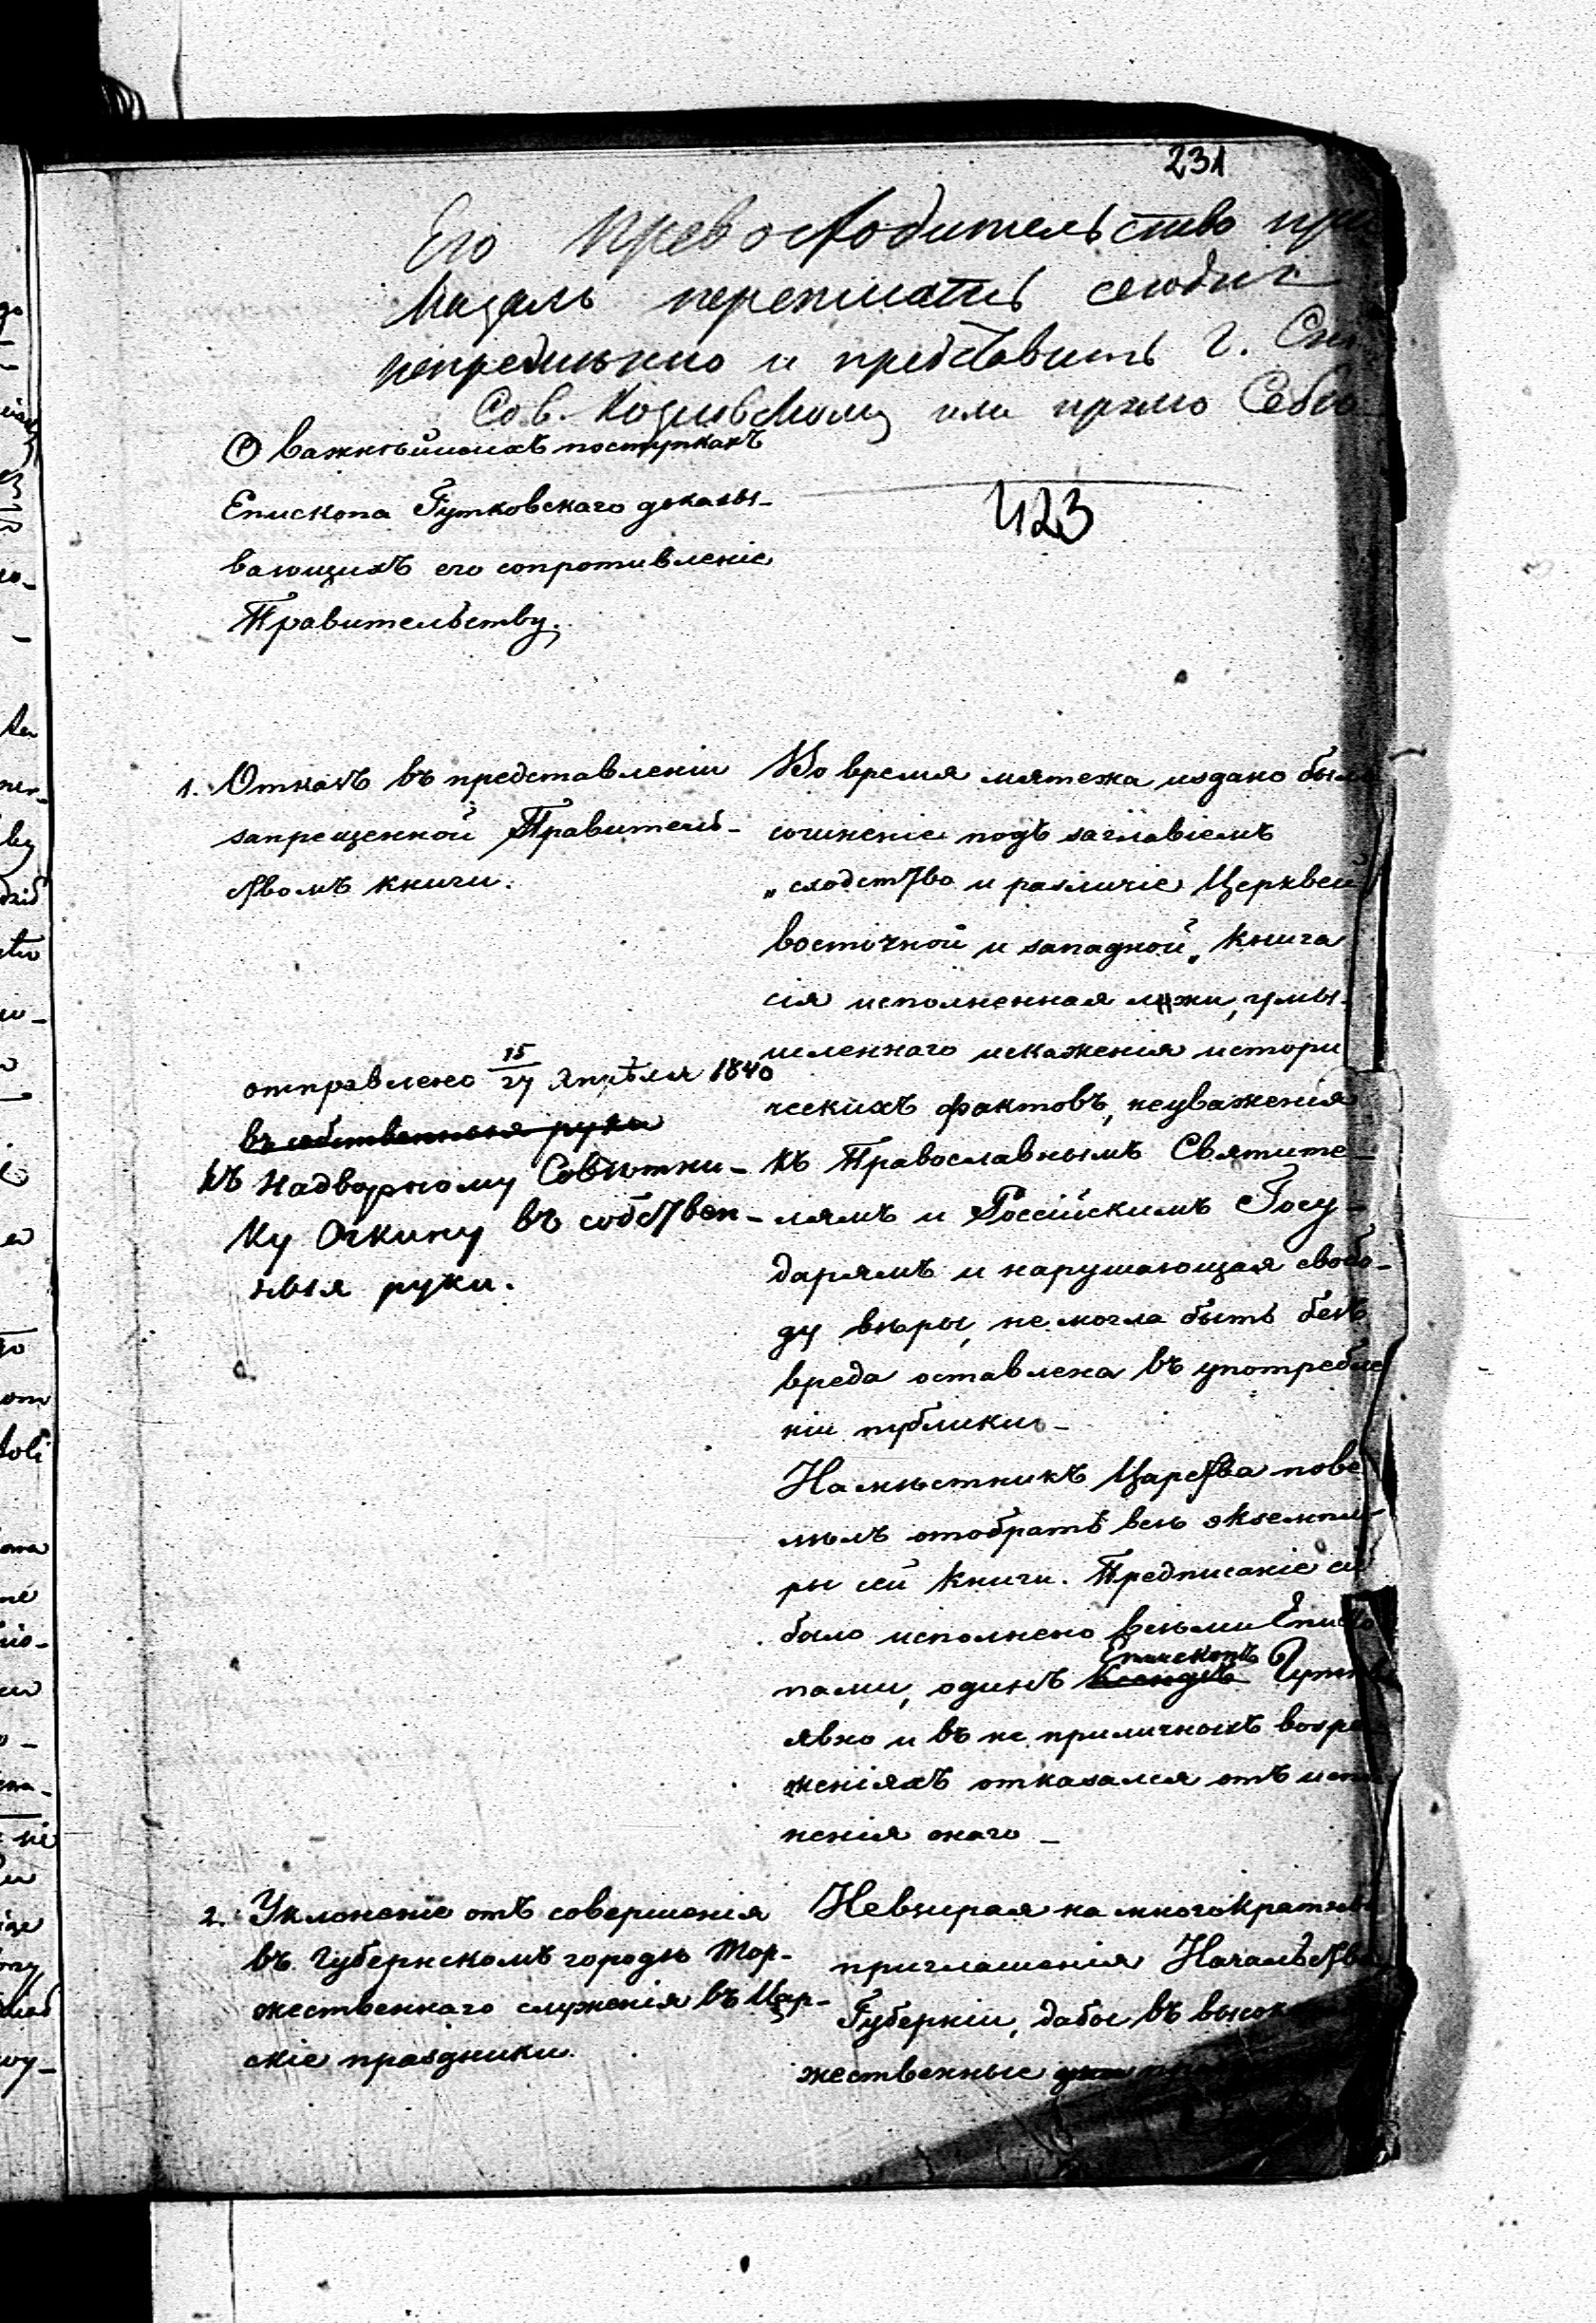 231
Его Превосходительство при
казалъ переписать сегодня
непременно и представить г. Ст.
Сов. Козловскому или прямо Себѣ
423
О важнѣйшихъ поступкахъ
Епископа Гутковскаго доказы-
вающихъ его сопротивленіе
Правительству.
1. Отказъ въ представленіи
запрещенной Правитель-
ствомъ книги.
отправлено 15/27 Апрѣля 1840
въ собственныя руки
къ Надворному Совѣтни-
ку Очкину въ собствен-
ныя руки.
Во время мятежа издано было
сочиненіе подъ заглавіемъ
„сходство и различіе Церквей
восточной и западной„ книга
сія исполненная лжи, умы-
шленнаго искаженія истори
ческихъ фактовъ, неуваженія
къ Православнымъ Святите-
лямъ и Россійскимъ Госу-
дарямъ и нарушающая свобо-
ду вѣры, не могла быть безъ
вреда оставлена въ употребле
ніи публики-
Намѣстникъ Царства пове
лѣлъ отобрать всѣ экземпля-
ры сей книги. Предписаніе сіе
было исполнено всѣми Еписко
пами, одинъ Ксендзъ Епископъ Гутков
явно и въ не приличныхъ возра
женіяхъ отказался отъ испол
ненія онаго -
2. Уклоненіе отъ совершенія
въ губернскомъ городѣ тор-
жественнаго служенія въ Цар-
скіе праздники.
Невзирая на многократныя
приглашенія Начальства
Губерніи, дабы въ высок
жественные